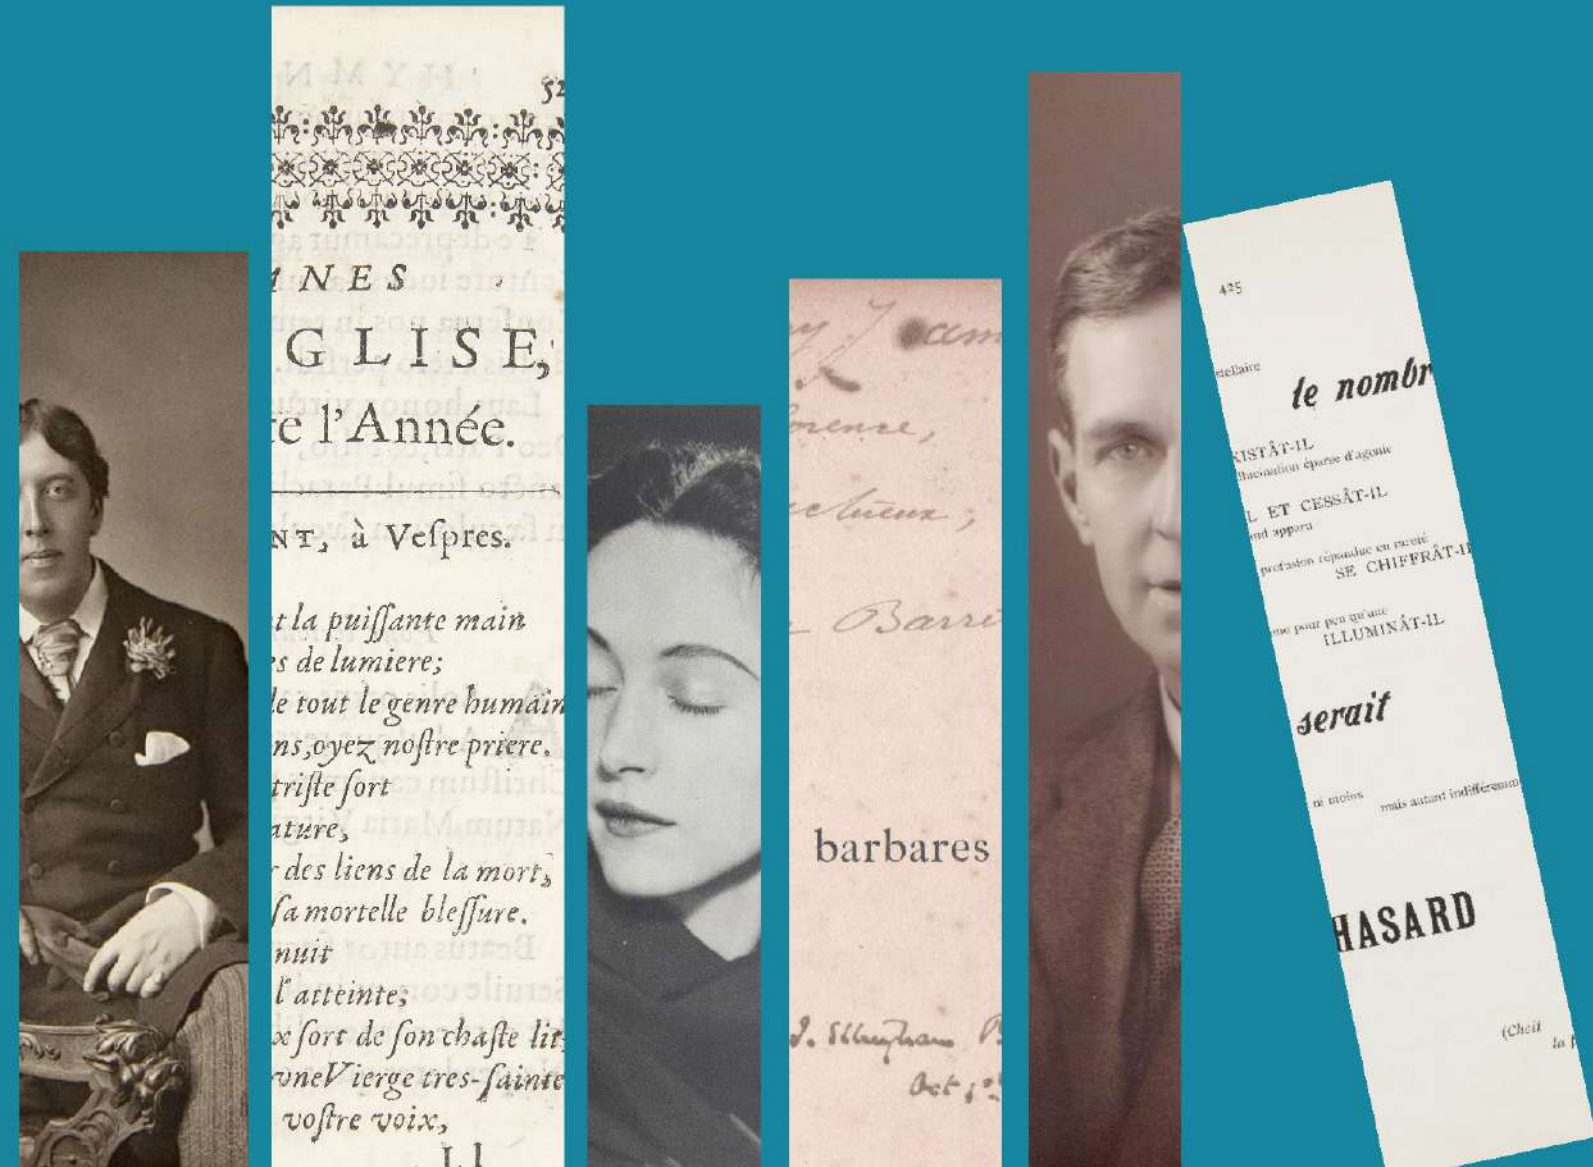 52
NES
GLISE,
te l'Année.
NT, à Veſpres.
t la puiſſante main
es de lumiere;
de tout le genre humain
ns, oyez noſtre priere.
triſte ſort
ature,
r des liens de la mort,
ſa mortelle bleſſure.
nuit
l'atteinte;
x ſort de ſon chaſte lit,
vne Vierge tres-ſainte
voſtre voix,
Ll
orence,
ctueux,
Barrè
barbares
Oct
425
stellaire
le nombr
XISTÂT-IL
llucination éparse d'agonie
L ET CESSÂT-IL
nd apparu
profusion répandue en rareté
SE CHIFFRÂT-IL
me pour peu qu'une
ILLUMINÂT-IL
serait
ni moins
mais autant indifféremm
HASARD
(Choit
la p